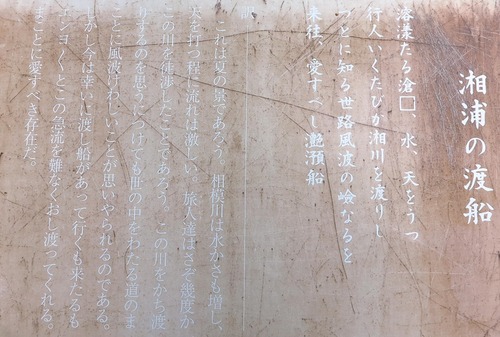 湘浦の渡船
溶漾たる滄□、水、天をうつ
行人いくたびか湘川を渡りし
つとに知る世路風波の嶮なるを
来往、愛すべし灔澦船
訳
これは夏の景であろう。相模川は水かさも増し、
天を打つ程に流れは激しい。旅人達はさぞ幾度か
この川を徒渉したことであろう。この川をかち渡
りするのを思うにつけても世の中をわたる道のま
ことに風波のわしいことが思いやられるのである。
しかし今は幸いに渡し船があって行くも来たるも
ヤンヨ〱とこの急流を難なくおし渡ってくれる。
まことに愛すべき存在だ。